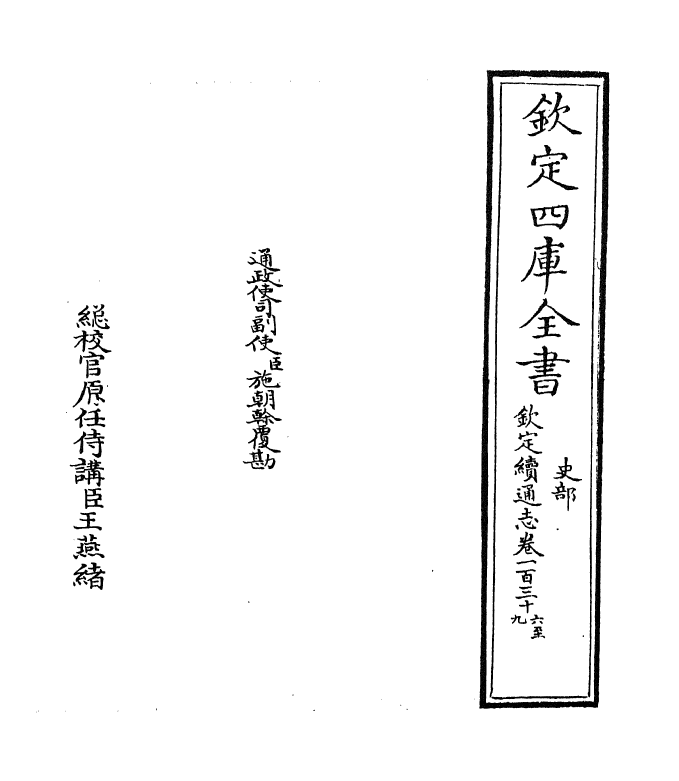 欽定四庫全書
史部
欽定續通志卷一百三十六至九
通政使司副使臣施朝榦覆勘
總校官原任侍講臣王燕緒